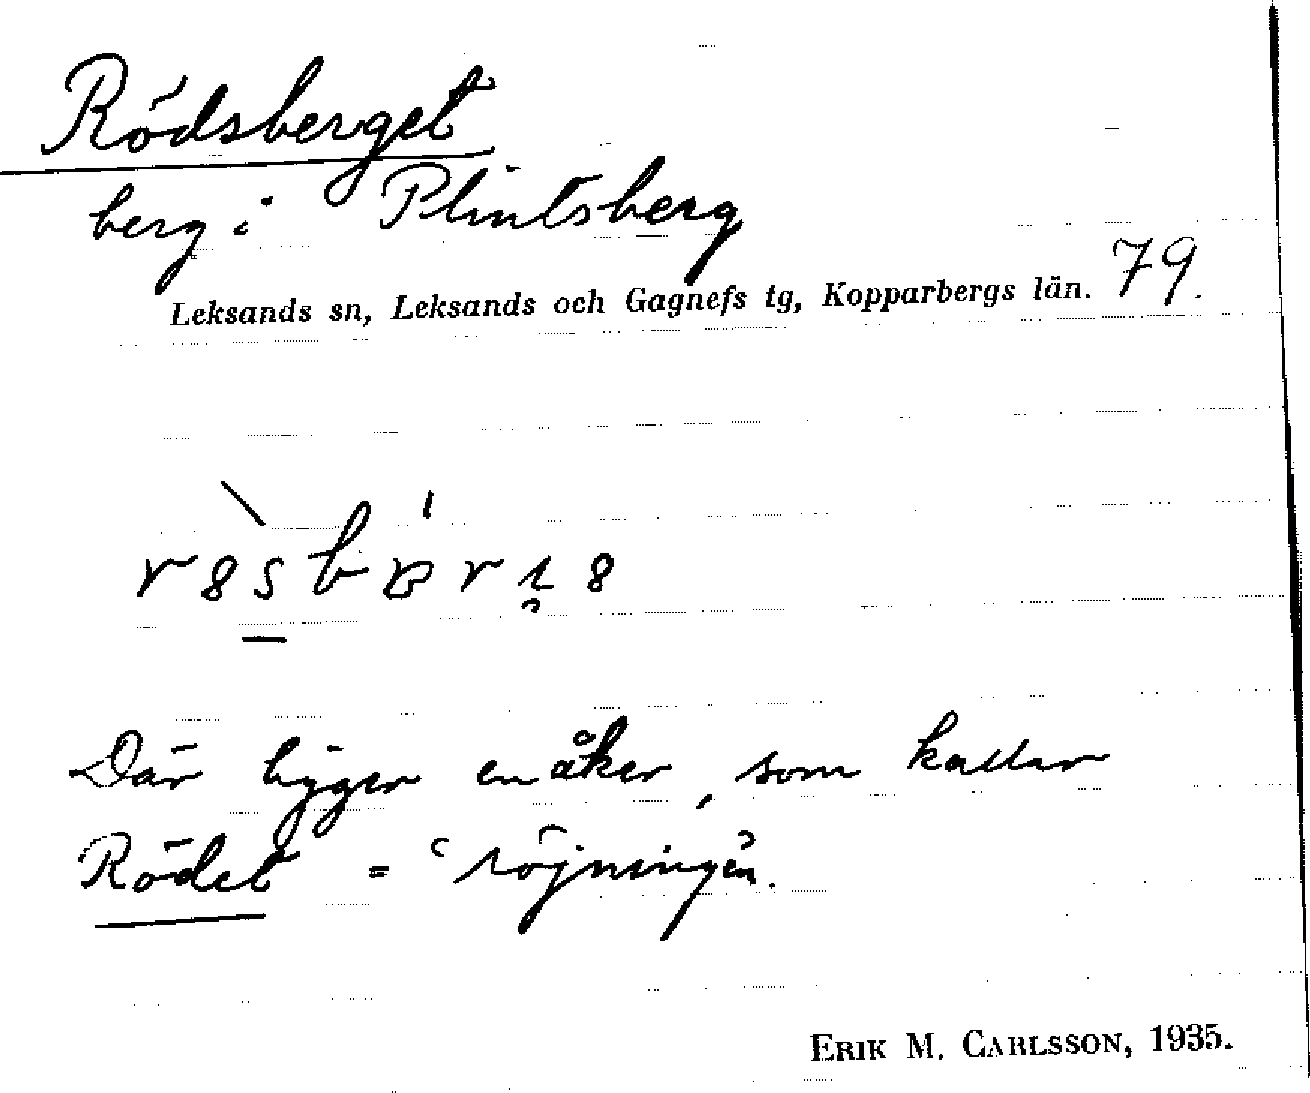 Rödsberget
berg i Plintsberg
Leksands sn, Leksands och Gagnefs tg, Kopparbergs län. 79.
Där ligger en åker, som kallar
Rödet = 'röjningen'.
ERIK M. CARLSSON, 1935.